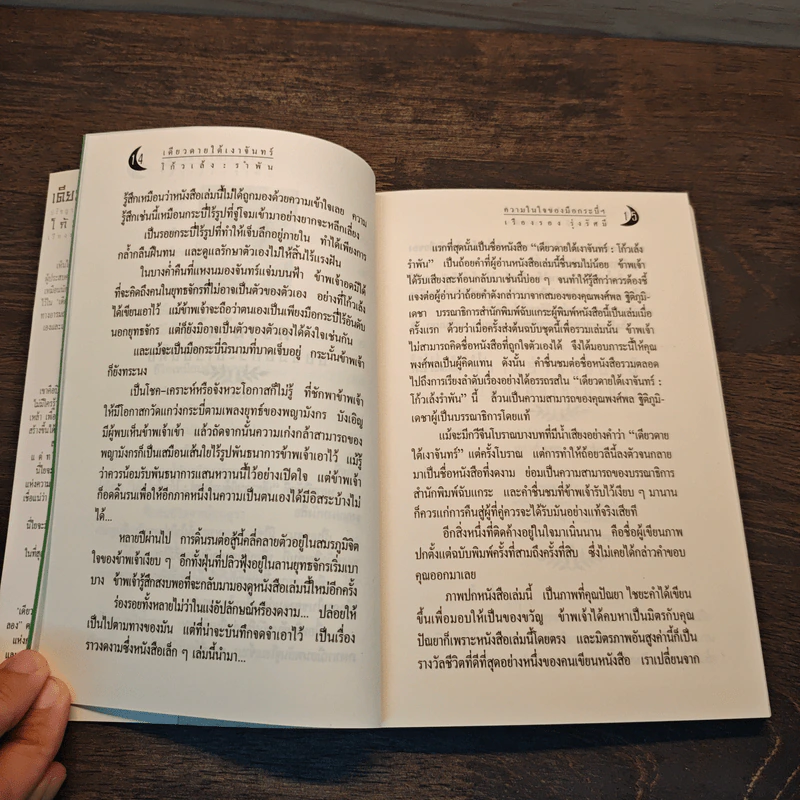 14
เดียวดายใต้เงาจันทร์
โก้วเล้ง : รำพัน
รู้สึกเหมือนว่าหนังสือเล่มนี้ไม่ได้ถูกมองด้วยความเข้าใจเลย ความ
รู้สึกเช่นนี้เหมือนกระบี่ไร้รูปที่จู่โจมเข้ามาอย่างยากจะหลีกเลี่ยง
เป็นรอยกระบี่ไร้รูปที่ทำให้เจ็บลึกอยู่ภายใน ทำได้เพียงการ
กล้ำกลืนฝืนทน และดูแลรักษาตัวเองไม่ให้สิ้นไร้แรงฝัน
ในบางค่ำคืนที่แหงนมองจันทร์แจ่มบนฟ้า ข้าพเจ้าอดมิได้
ที่จะคิดถึงคนในยุทธจักรที่ไม่อาจเป็นตัวของตัวเอง อย่างที่โก้วเล้ง
ได้เขียนเอาไว้ แม้ข้าพเจ้าจะถือว่าตนเองเป็นเพียงมือกระบี่ไร้อันดับ
นอกยุทธจักร แต่ก็ยังมิอาจเป็นตัวของตัวเองได้ดังใจเช่นกัน
และแม้จะเป็นมือกระบี่นิรนามที่บาดเจ็บอยู่ กระนั้นข้าพเจ้า
ก็ยังทระนง
เป็นโชค-เคราะห์หรือจังหวะโอกาสก็ไม่รู้ ที่ชักพาข้าพเจ้า
ให้มีโอกาสกวัดแกว่งกระบี่ตามเพลงยุทธ์ของพญามังกร บังเอิญ
มีผู้พบเห็นข้าพเจ้าเข้า แล้วถัดจากนั้นความเก่งกล้าสามารถของ
พญามังกรก็เป็นเสมือนเส้นใยไร้รูปพันธนาการข้าพเจ้าเอาไว้ แม้รู้
ว่าควรน้อมรับพันธนาการแสนหวานนี้ไว้อย่างเปิดใจ แต่ข้าพเจ้า
ก็อดดิ้นรนเพื่อให้อีกภาคหนึ่งในความเป็นตนเองได้มีอิสระบ้างไม่
ได้...
หลายปีผ่านไป การดิ้นรนต่อสู้นี้คลี่คลายตัวอยู่ในสมรภูมิจิต
ใจของข้าพเจ้าเงียบ ๆ อีกทั้งฝุ่นที่ปลิวฟุ้งอยู่ในลานยุทธจักรเริ่มเบา
บาง ข้าพเจ้ารู้สึกสงบพอที่จะกลับมามองดูหนังสือเล่มนี้ใหม่อีกครั้ง
ร่องรอยทั้งหลายไม่ว่าในแง่อัปลักษณ์หรืองดงาม... ปล่อยให้
เป็นไปตามทางของมัน แต่ที่น่าจะบันทึกจดจำเอาไว้ เป็นเรื่อง
ราวงดงามซึ่งหนังสือเล็ก ๆ เล่มนี้นำมา...
ความในใจของมือกระบี่ฯ
เรืองรอง รุ่งรัศมี
15
แรกที่สุดนั้นเป็นชื่อหนังสือ “เดียวดายใต้เงาจันทร์ : โก้วเล้ง
รำพัน” เป็นถ้อยคำที่ผู้อ่านหนังสือเล่มนี้ชื่นชมไม่น้อย ข้าพเจ้า
ได้รับเสียงสะท้อนกลับมาเช่นนี้บ่อย ๆ จนทำให้รู้สึกว่าควรต้องชี้
แจงต่อผู้อ่านว่าถ้อยคำดังกล่าวมาจากสมองของคุณพงศ์พล ฐิติภูมิ-
เดชา บรรณาธิการสำนักพิมพ์จับแกระผู้พิมพ์หนังสือนี้เป็นเล่มเมื่อ
ครั้งแรก ด้วยว่าเมื่อครั้งส่งต้นฉบับชุดนี้เพื่อรวมเล่มนั้น ข้าพเจ้า
ไม่สามารถคิดชื่อหนังสือที่ถูกใจตัวเองได้ จึงได้มอบภาระนี้ให้คุณ
พงศ์พลเป็นผู้คิดแทน ดังนั้น คำชื่นชมต่อชื่อหนังสือรวมตลอด
ไปถึงการเรียงลำดับเรื่องอย่างได้อรรถรสใน “เดียวดายใต้เงาจันทร์ :
โก้วเล้งรำพัน” นี้ ล้วนเป็นความสามารถของคุณพงศ์พล ฐิติภูมิ-
เดชาผู้เป็นบรรณาธิการโดยแท้
แม้จะมีกวีจีนโบราณบางบทที่มีน้ำเสียงอย่างคำว่า “เดียวดาย
ใต้เงาจันทร์” แต่ครั้งโบราณ แต่การทำให้ถ้อยวลีนี้ลงตัวจนกลาย
มาเป็นชื่อหนังสือที่งดงาม ย่อมเป็นความสามารถของบรรณาธิการ
สำนักพิมพ์จับแกระ และคำชื่นชมที่ข้าพเจ้ารับไว้เงียบ ๆ มานาน
ก็ควรแก่การคืนสู่ผู้ที่คู่ควรจะได้รับมันอย่างแท้จริงเสียที
อีกสิ่งหนึ่งที่ติดค้างอยู่ในใจมาเนิ่นนาน คือชื่อผู้เขียนภาพ
ปกตั้งแต่ฉบับพิมพ์ครั้งที่สามถึงครั้งที่สิบ ซึ่งไม่เคยได้กล่าวคำขอบ
คุณออกมาเลย
ภาพปกหนังสือเล่มนี้ เป็นภาพที่คุณปัณยา ไชยะคำได้เขียน
ขึ้นเพื่อมอบให้เป็นของขวัญ ข้าพเจ้าได้คบหาเป็นมิตรกับคุณ
ปัณยาก็เพราะหนังสือเล่มนี้โดยตรง และมิตรภาพอันสูงค่านี้ก็เป็น
รางวัลชีวิตที่ดีที่สุดอย่างหนึ่งของคนเขียนหนังสือ เราเปลี่ยนจาก